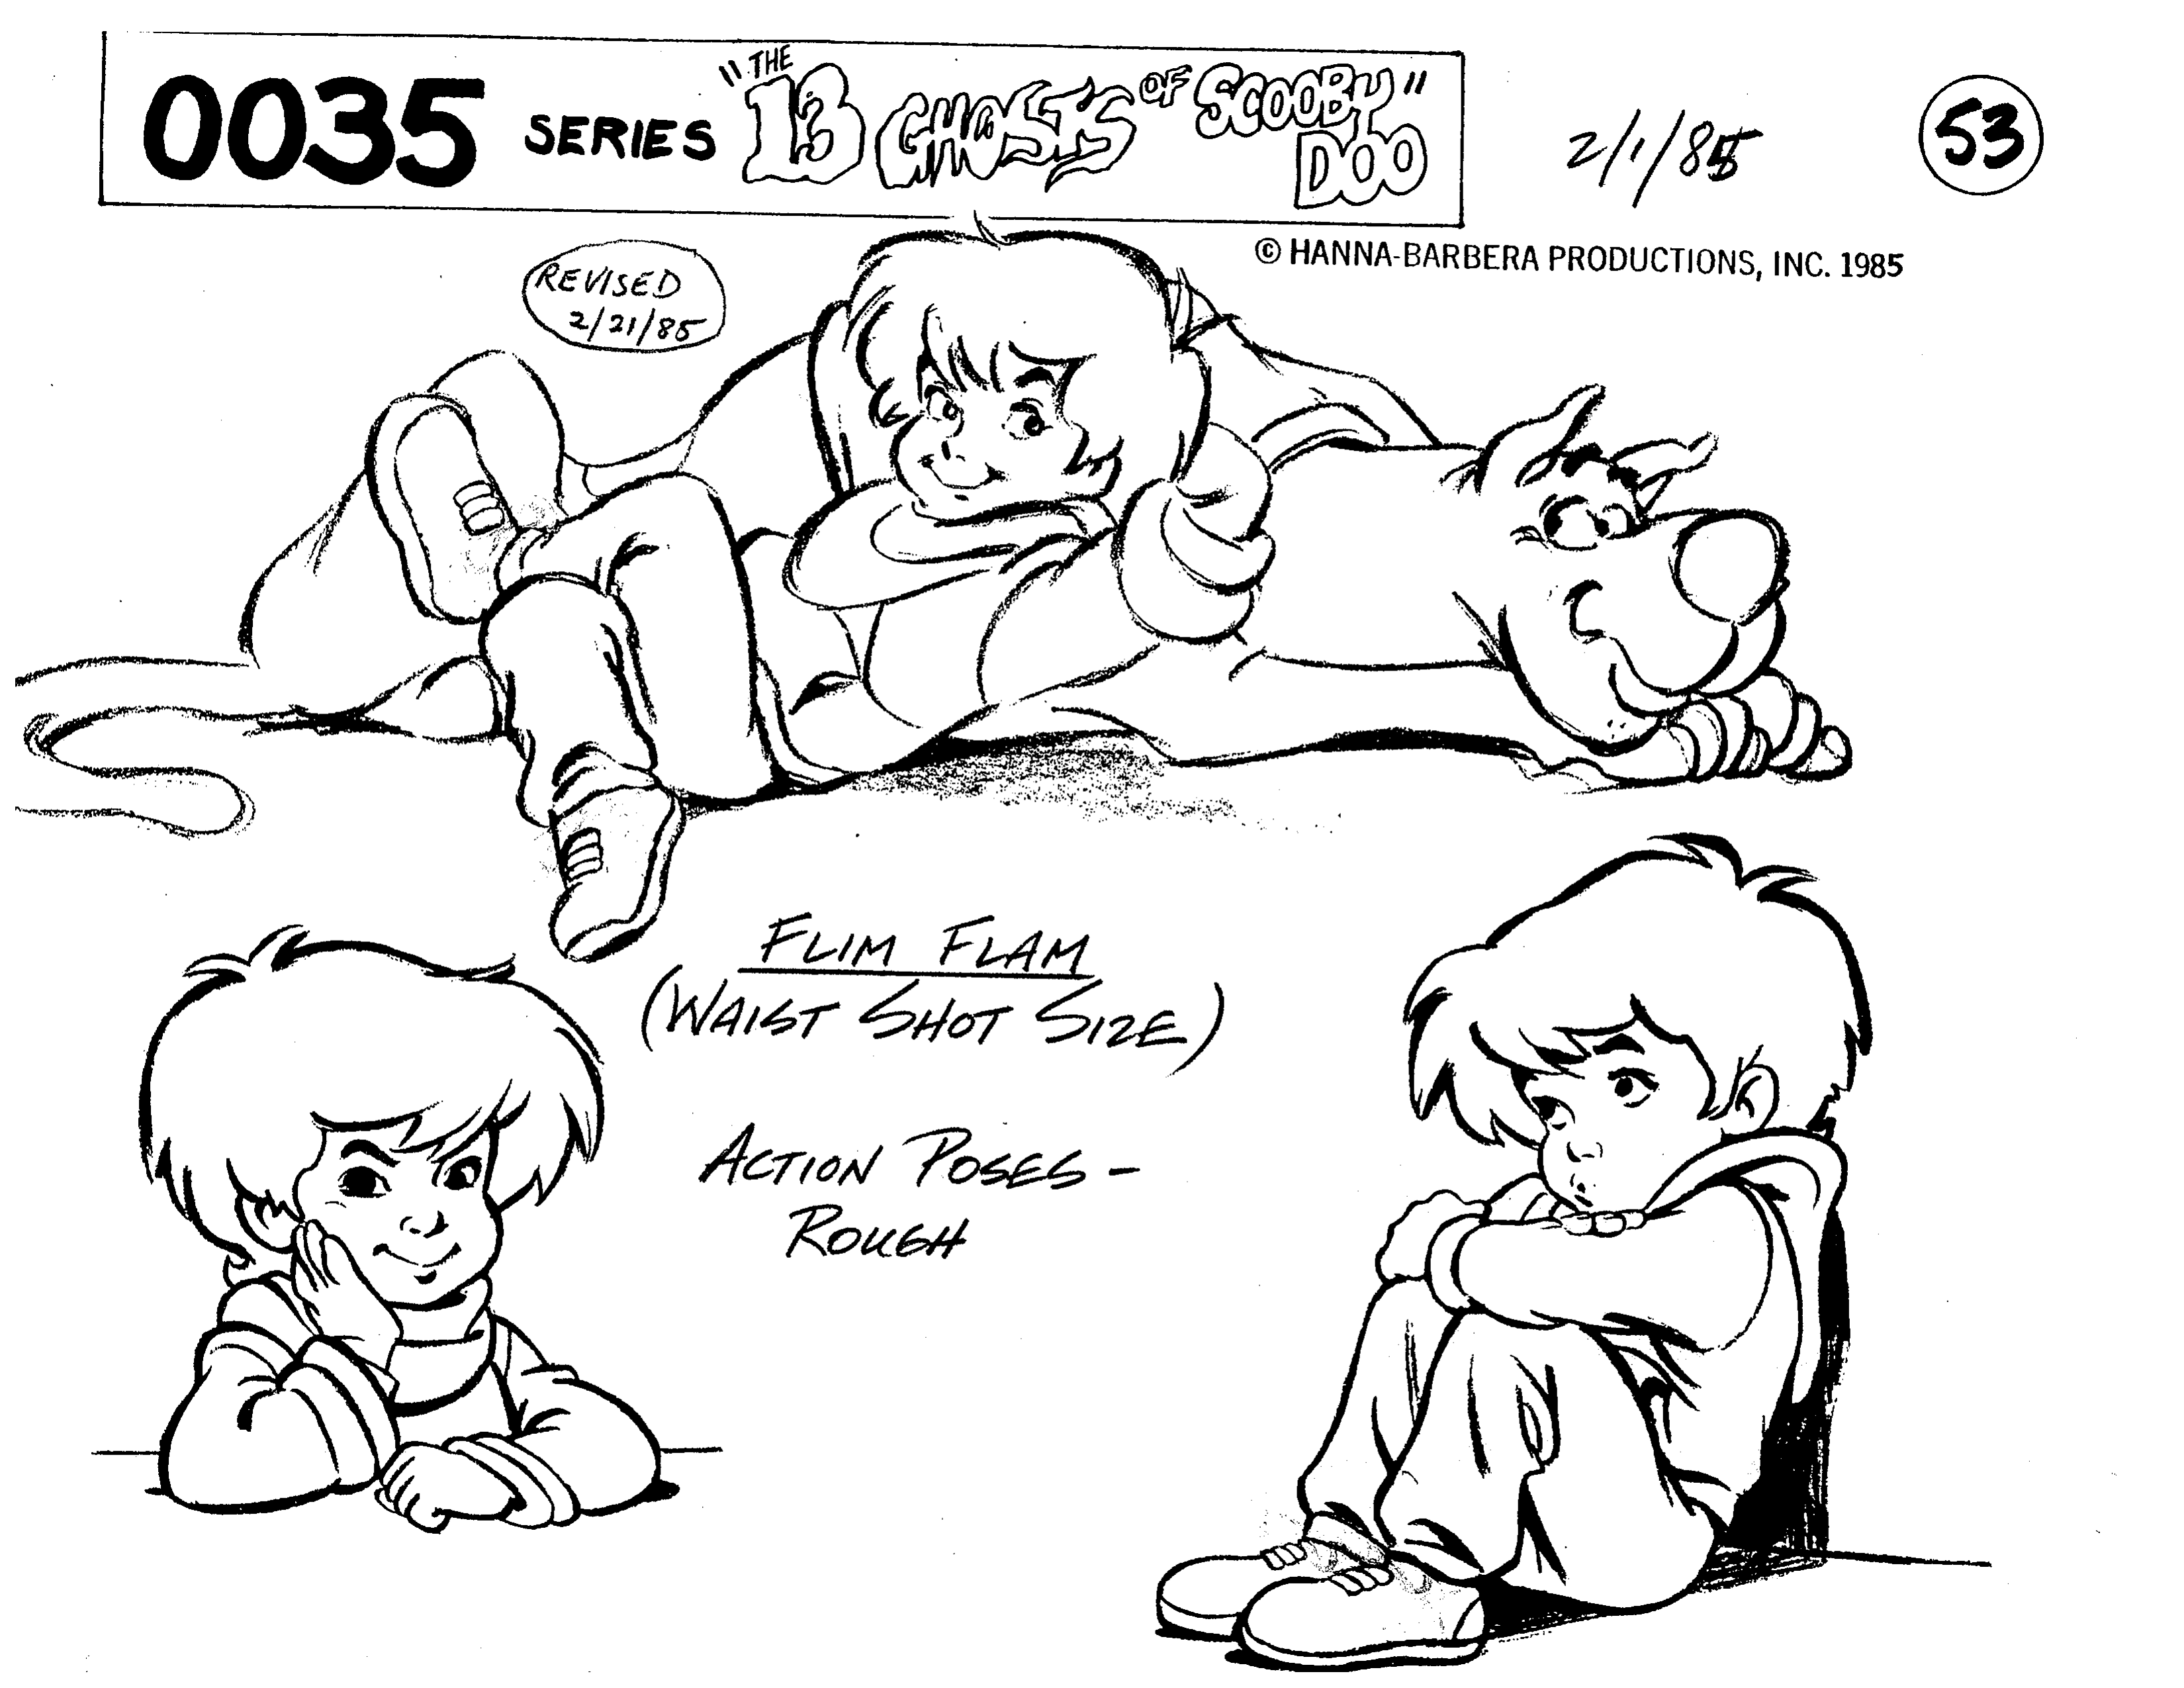 0035 SERIES "THE 13 GHOSTS OF SCOOBY DOO"
2/1/85
53
© HANNA-BARBERA PRODUCTIONS, INC. 1985
REVISED
2/21/85
FLIM FLAM
(WAIST SHOT SIZE)
ACTION POSES-
ROUGH